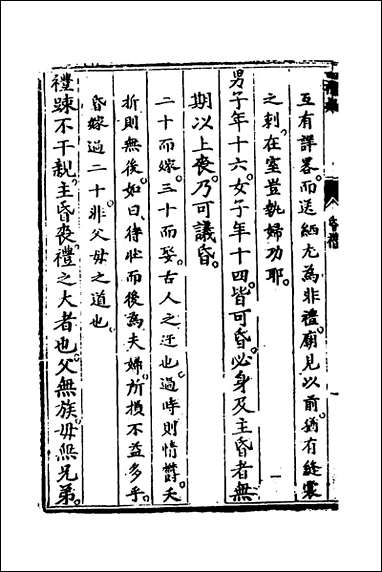 昏禮
互有詳畧。而送紼尤為非禮。廟見以前。猶有縫裳
之刺。在室豈執婦功耶。
男子年十六。女子年十四。皆可昏。必身及主昏者無
期以上喪。乃可議昏。
二十而嫁。三十而娶。古人之迂也。過時則情欝。夭
折則無後。如曰。待壯而後為夫婦。所損不益多乎。
昏嫁過二十。非父母之道也。
禮踈不干親。主昏喪。禮之大者也。父無族。母無兄弟。